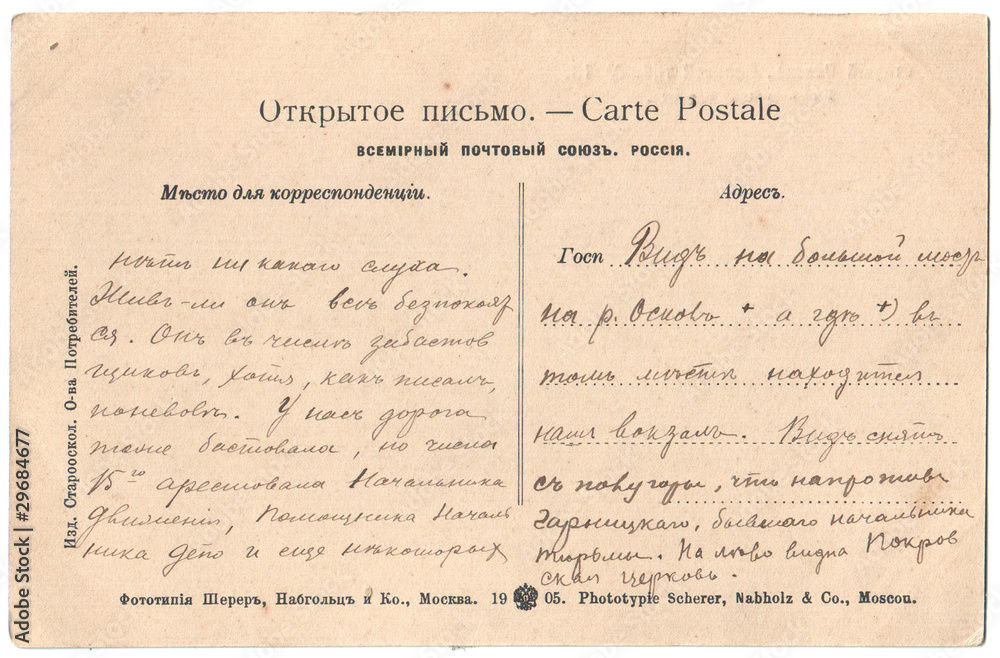 Открытое письмо. — Carte Postale
ВСЕМІРНЫЙ ПОЧТОВЫЙ СОЮЗЪ. РОССІЯ.
Мѣсто для корреспонденціи.
нѣтъ ни какого слуха.
Живъ-ли онъ все безпокоят
ся. Онъ въ числѣ забастов
щиковъ, хотя, какъ писалъ,
поневолѣ. У насъ дорога
тоже бастовала, но числа
15го арестовала Начальника
движенія, Помощника Началь
ника депо и еще нѣкоторыхъ
Адресъ.
Госп Видъ на большой мостъ
на р. Осколъ + а гдѣ +) въ
томъ мѣстѣ находится
нашъ вокзалъ. Видъ снятъ
съ полугоры, что напротивъ
Гарницкаго, бывшаго начальника
тюрьмы. На лѣво видна Покров
ская церковь.
Изд. Староoскол. О-ва Потребителей.
Фототипія Шереръ, Набгольцъ и Ко., Москва. 19 05. Phototypie Scherer, Nabholz & Co., Moscou.
Adobe Stock | #29684677